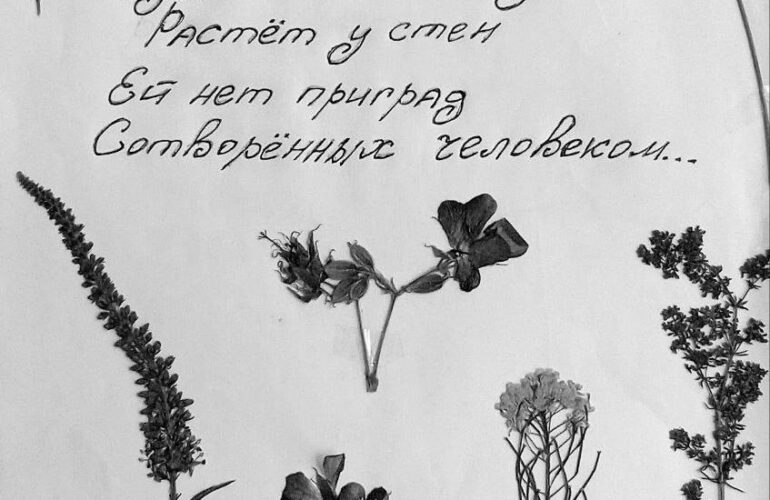 Растёт у стен
Ей нет приград
Сотворённых человеком...